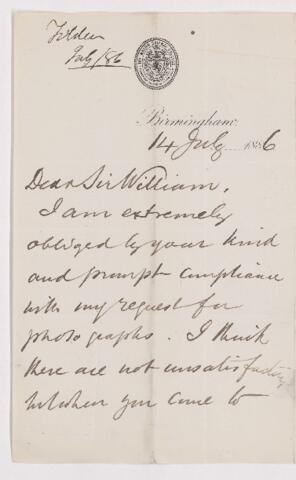 Tilden
July/86
Birmingham.
14 July 1886
Dear Sir William,
I am extremely
obliged by your kind
and prompt compliance
with my request for
photographs. I think
these are not unsatisfactory
when you come to